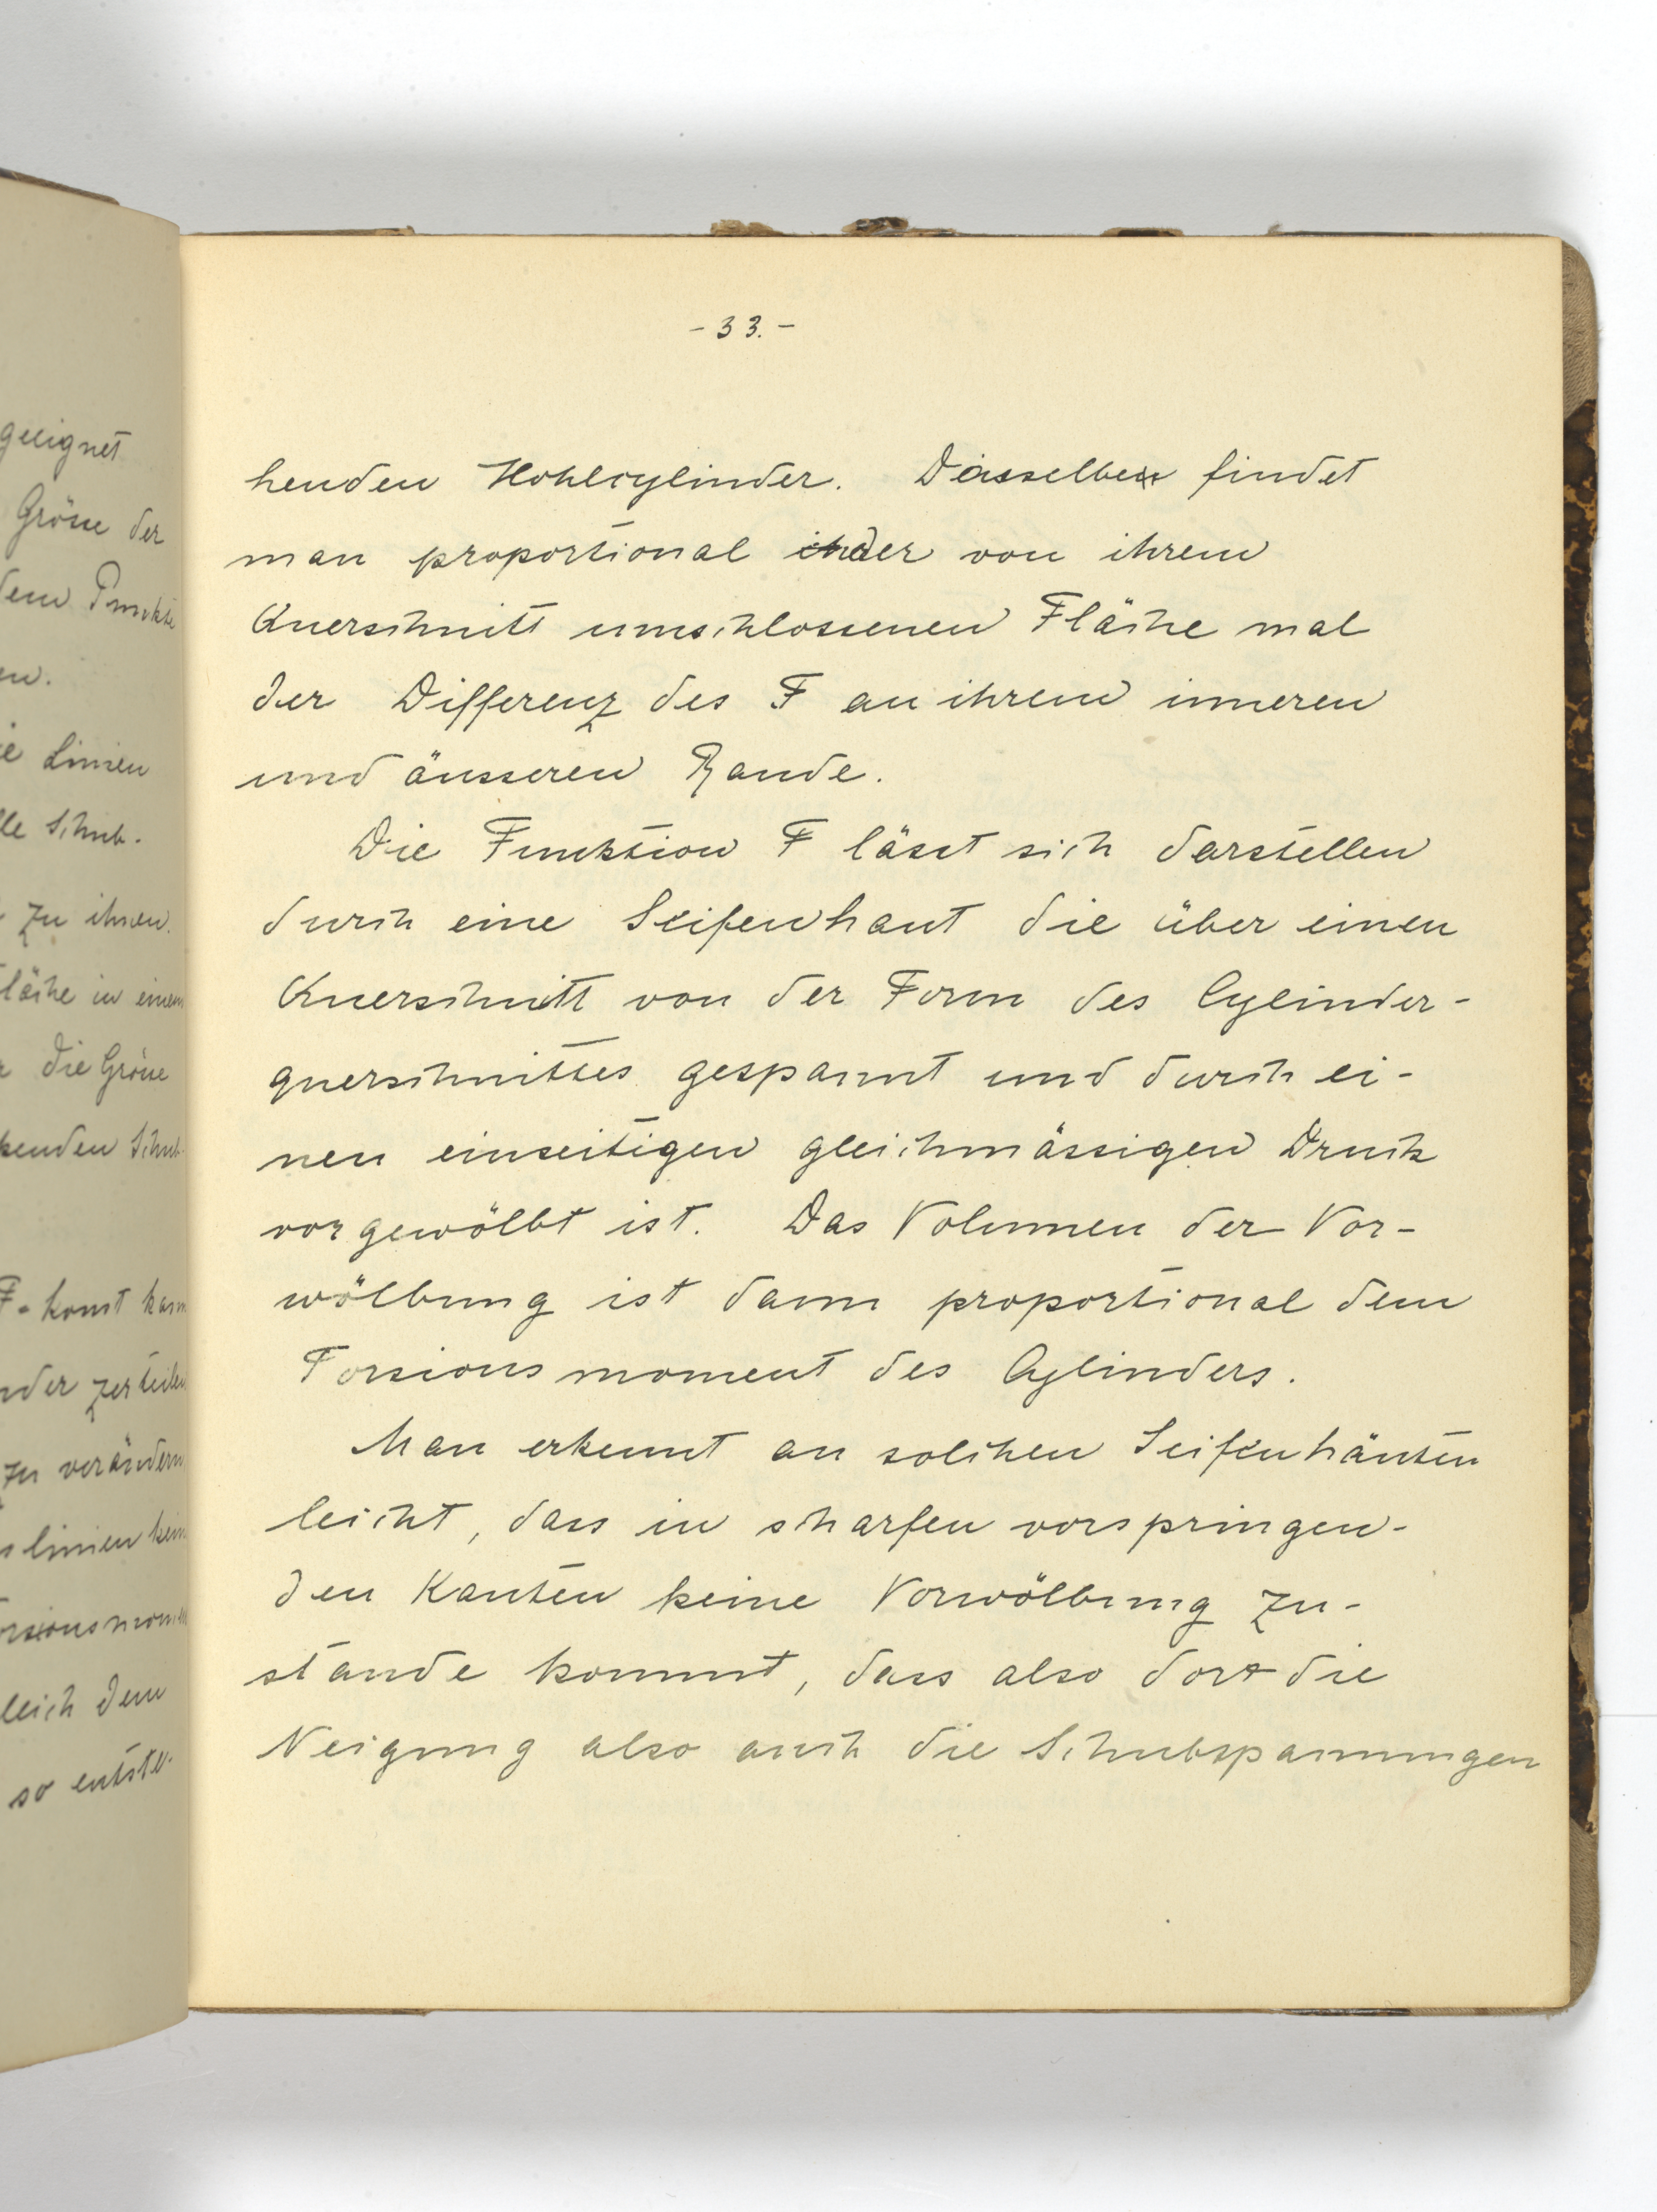 geeignet
Grösse der
dem Punkte
en.
ie Linien
lle Schub-
zu ihnen.
Fläche in einem
die Grösse
kenden Schub-
F = konst kann
nder zerteilen
zu verändern
slinien kein
orsionsmomen
leich dem
so entste-
- 33. -
henden Hohlcylinder. Dasselbe findet
man proportional der von ihrem
Querschnitt umschlossenen Fläche mal
der Differenz des F an ihrem inneren
und äusseren Rande.
Die Funktion F lässt sich darstellen
durch eine Seifenhaut die über einen
Querschnitt von der Form des Cylinder-
querschnittes gespannt und durch ei-
nen einseitigen gleichmässigen Druck
vorgewölbt ist. Das Volumen der Vor-
wölbung ist dann proportional dem
Torsionsmoment des Cylinders.
Man erkennt an solchen Seifenhäuten
leicht, dass in scharfen vorspringen-
den Kanten keine Vorwölbung zu-
stande kommt, dass also dort die
Neigung also auch die Schubspannungen